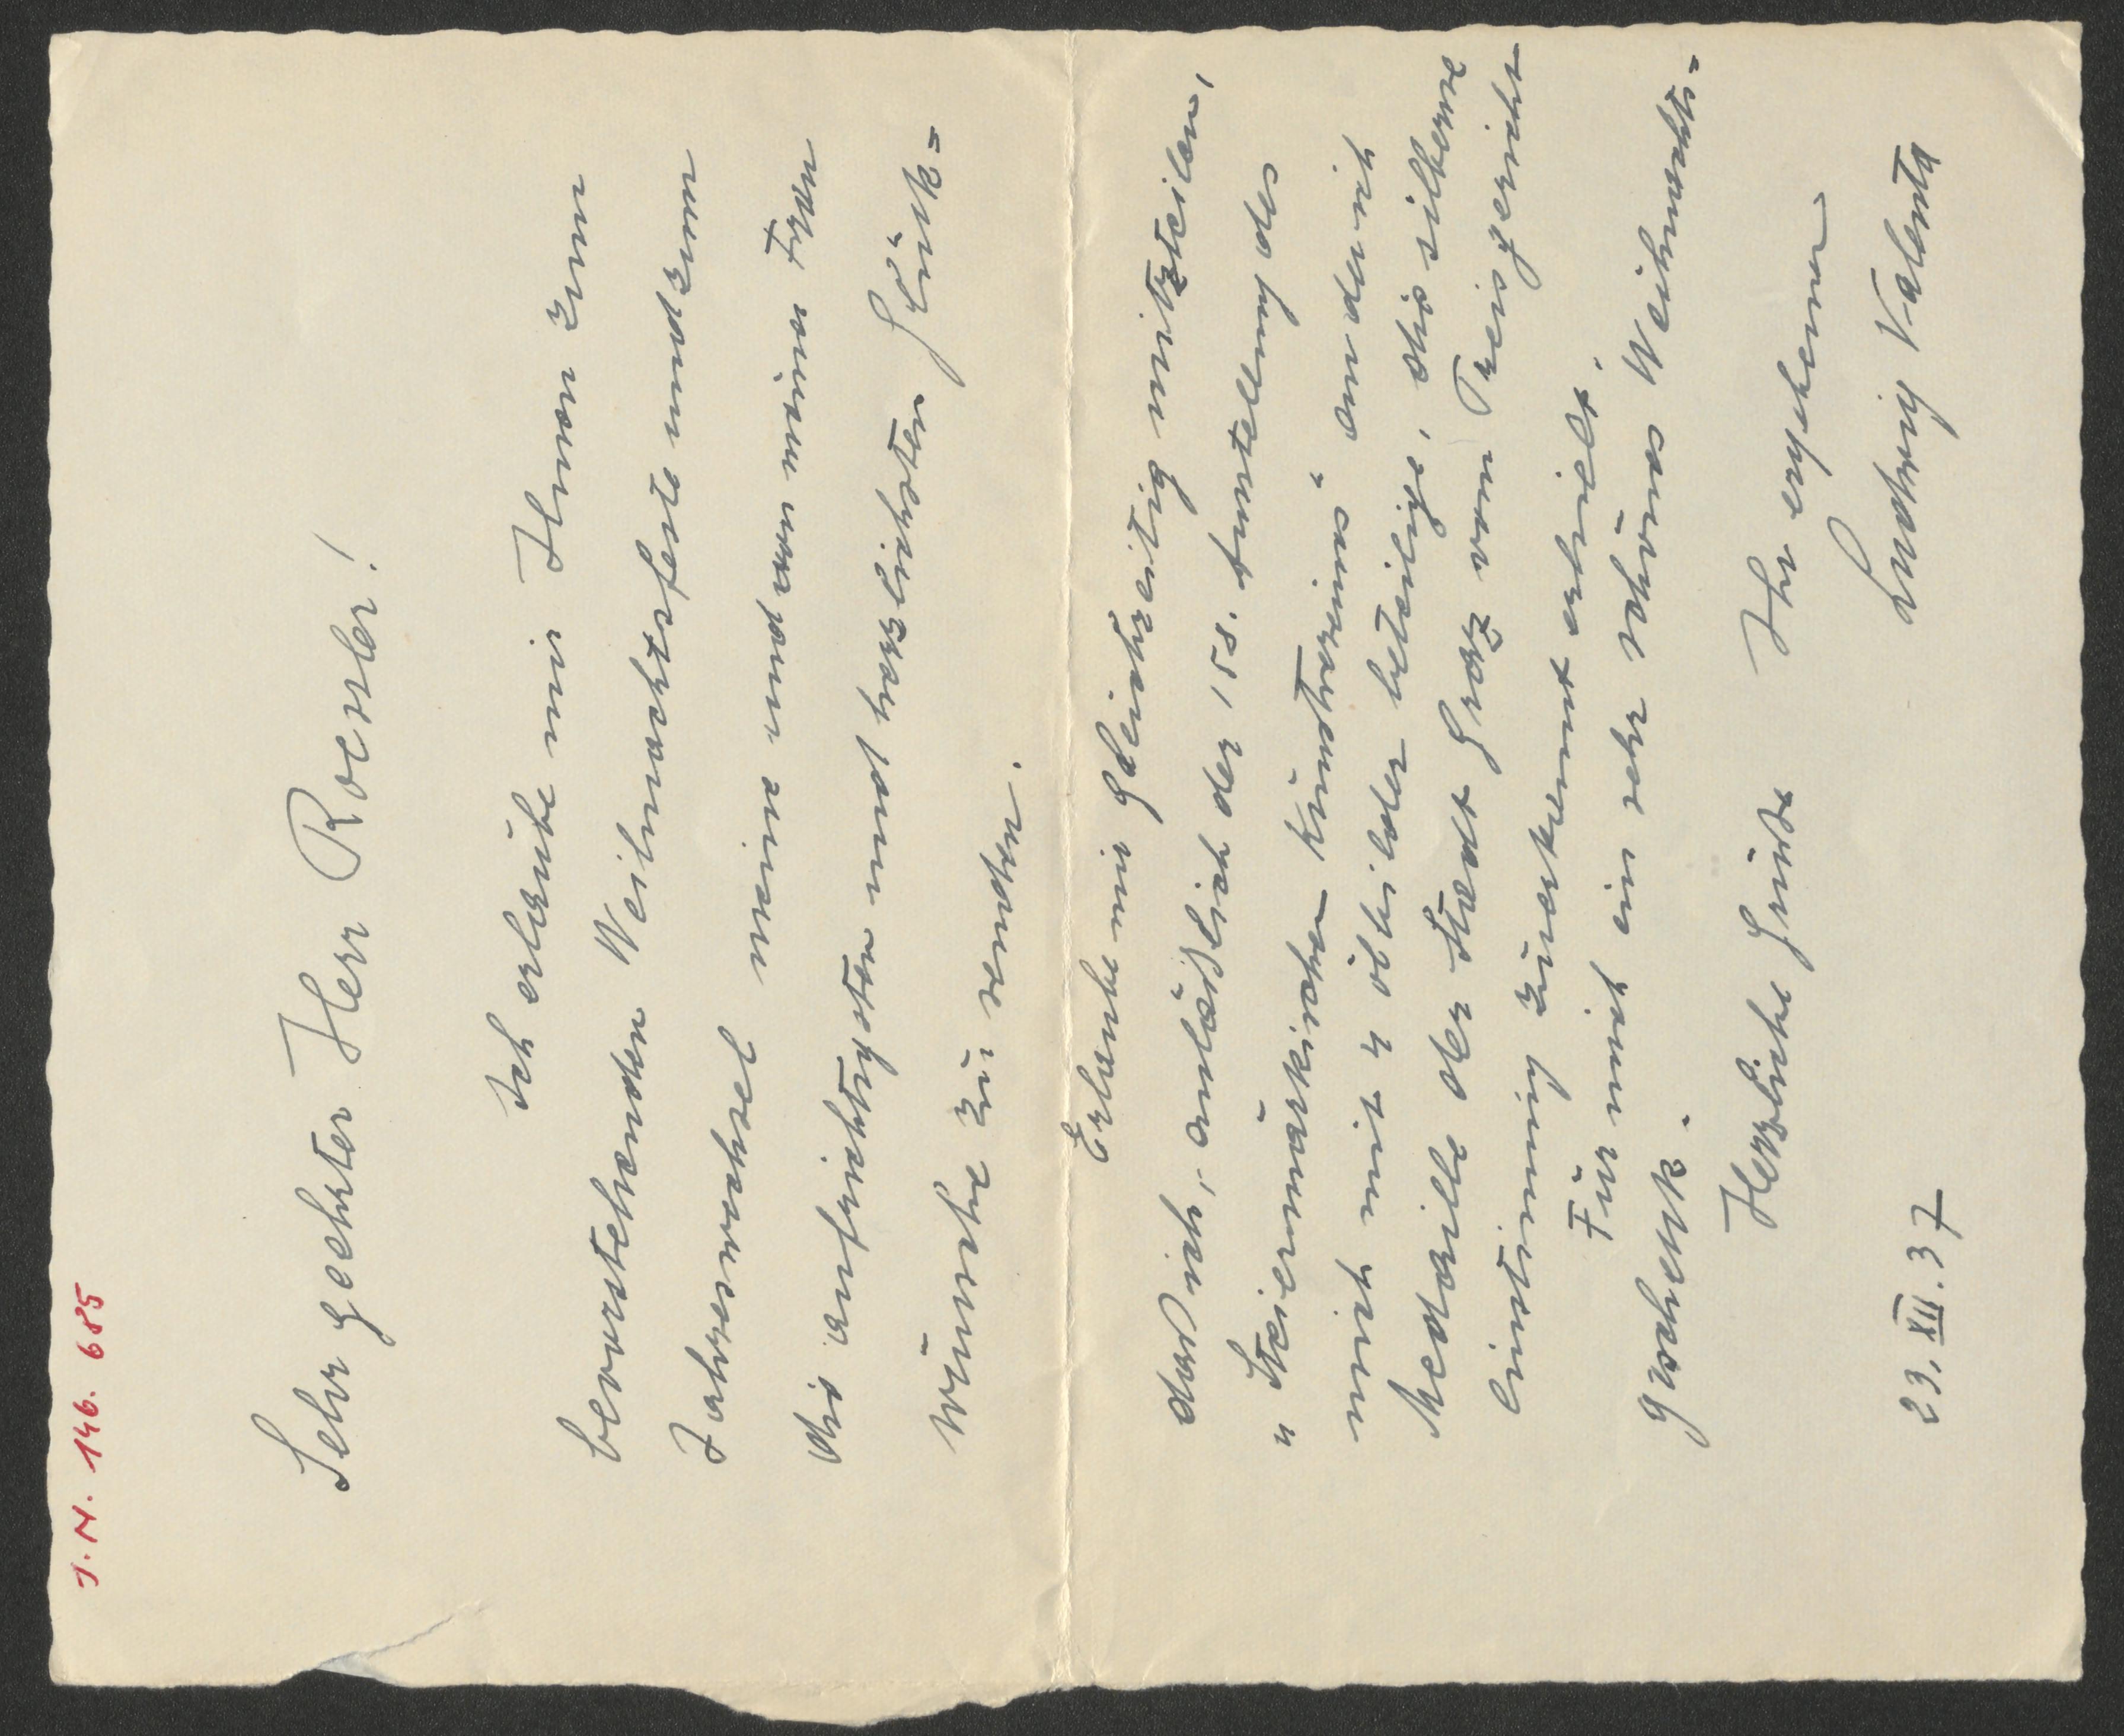 J.N. 146.685
Sehr geehrter Herr Roessler!
Ich erlaube mir Ihnen zum
bevorstehenden Weihnachtsfeste und zum
Jahreswechsel meine und meiner Frau
die aufrichtigsten und herzlichsten Glück=
wünsche zu senden.
Erlaube mir gleichzeitig mitzteilen,
dass ich, anlässlich der 158. Ausstellung des
"Steiermärkischen Kunstvereines" an der ich
mich mit 4 Ölbilder beteilige, die silberne
Medaille der Stadt Graz vom Preisgericht
einstimmig zuerkannt erhielt.
Für mich ein sehr schönes Weihnachts=
geschenk.
Herzliche Grüße Ihr ergebener
23.XII.37 Ludwig Valenta